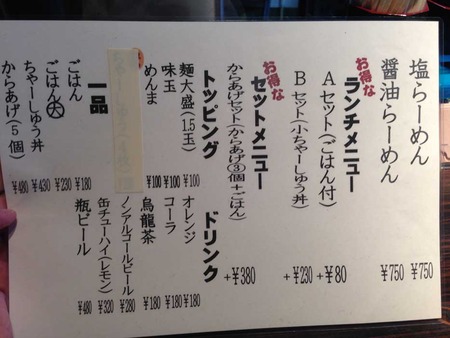 塩らーめん ¥750
醤油らーめん ¥750
お得な
ランチメニュー
Aセット(ごはん付) +¥80
Bセット(小ちゃーしゅう丼) +¥230
お得な
セットメニュー
からあげセット(からあげ③個+ごはん) +¥380
トッピング
麺大盛(1.5玉) ¥100
味玉 ¥100
めんま ¥100
一品
ごはん ¥180
ごはん大 ¥230
ちゃーしゅう丼 ¥430
からあげ(5個) ¥480
ドリンク
オレンジ ¥180
コーラ ¥180
烏龍茶 ¥180
ノンアルコールビール ¥280
缶チューハイ(レモン) ¥320
瓶ビール ¥480